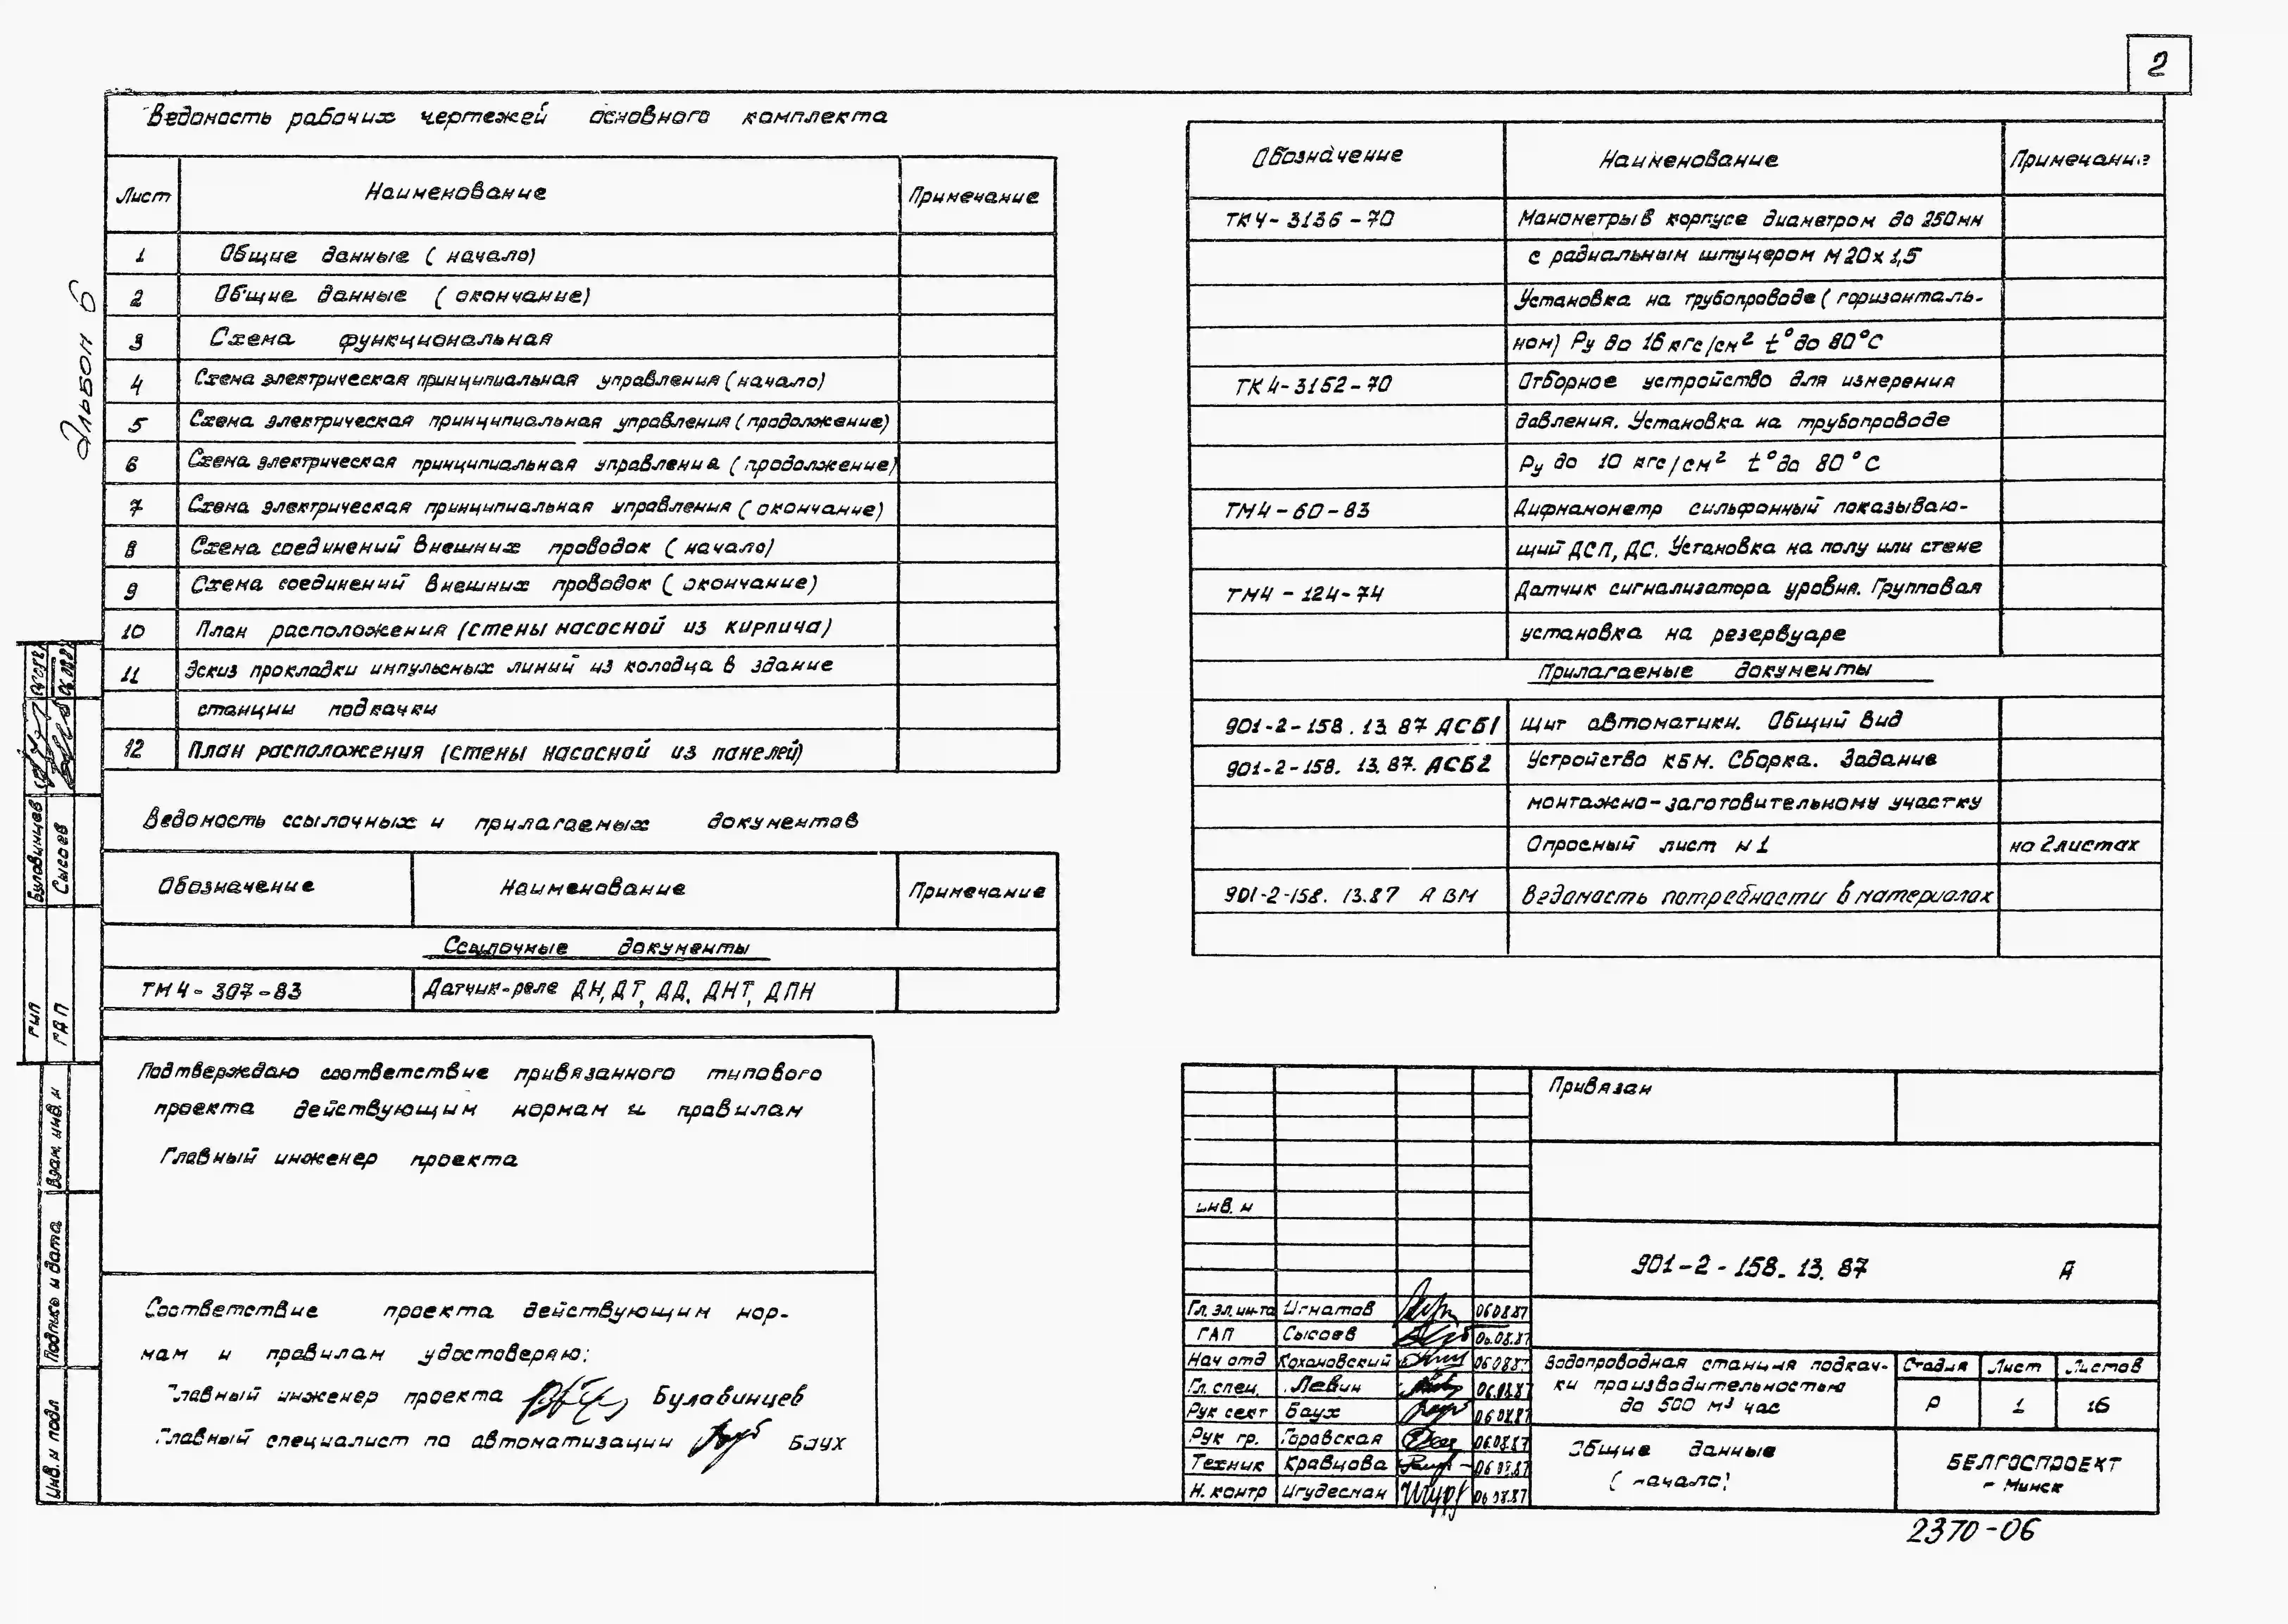 2
Альбом 6
Ведомость рабочих чертежей основного комплекта
Лист Наименование Примечание
1 Общие данные ( начало)
2 Общие данные ( окончание)
3 Схема функциональная
4 Схема электрическая принципиальная управления ( начало)
5 Схема электрическая принципиальная управления ( продолжение)
6 Схема электрическая принципиальная управления ( продолжение)
7 Схема электрическая принципиальная управления ( окончание)
8 Схема соединений внешних проводок ( начало)
9 Схема соединений внешних проводок ( окончание)
10 План расположения (стены насосной из кирпича)
11 Эскиз прокладки импульсных линий из колодца в здание
станции подкачки
12 План расположения (стены насосной из панелей)
Ведомость ссылочных и прилагаемых документов
Обозначение Наименование Примечание
Ссылочные документы
ТМ4-307-83 Датчик-реле ДН, ДТ, ДД, ДНТ, ДПН
Подтверждаю соответствие привязанного типового
проекта действующим нормам и правилам
Главный инженер проекта
Соответствие проекта действующим нор-
мам и правилам удостоверяю:
Главный инженер проекта Булавинцев
Главный специалист по автоматизации Баух
Обозначение Наименование Примечание
ТК4-3136-70 Манометры в корпусе диаметром до 250мм
с радиальным штуцером М20х1,5
Установка на трубопроводе ( горизонталь-
ном) Ру до 16 кгс/см² t° до 80°С
ТК4-3152-70 Отборное устройство для измерения
давления. Установка на трубопроводе
Ру до 10 кгс/см² t° до 80°С
ТМ4-60-83 Дифманометр сильфонный показываю-
щий ДСП, ДС. Установка на полу или стене
ТМ4-124-74 Датчик сигнализатора уровня. Групповая
установка на резервуаре
Прилагаемые документы
901-2-158.13.87 АСБ1 Щит автоматики. Общий вид
901-2-158.13.87. АСБ2 Устройство КБМ. Сборка. Задание
монтажно-заготовительному участку
Опросный лист н1 на 2 листах
901-2-158.13.87 А ВМ Ведомость потребности в материалах
Привязан
инв. н
901-2-158.13.87 А
Гл. эл. ин-та Игнатов 06.08.87
ГАП Сысоев 06.08.87
Нач отд Кохановский 06.08.87
Гл. спец. Левин 06.08.87
Рук сект Баух 06.08.87
Рук гр. Горавская 06.08.87
Техник Кравцова 06.08.87
Н. контр Игудесман 06.08.87
Водопроводная станция подкач-
ки производительностью
до 500 м³ час
Стадия Лист Листов
Р 1 16
Общие данные
( начало)
БЕЛГОСПРОЕКТ
г Минск
2370-06
ГИП Булавинцев
ГАП Сысоев
Взам. инв. н
Подпись и дата
Инв. н подл